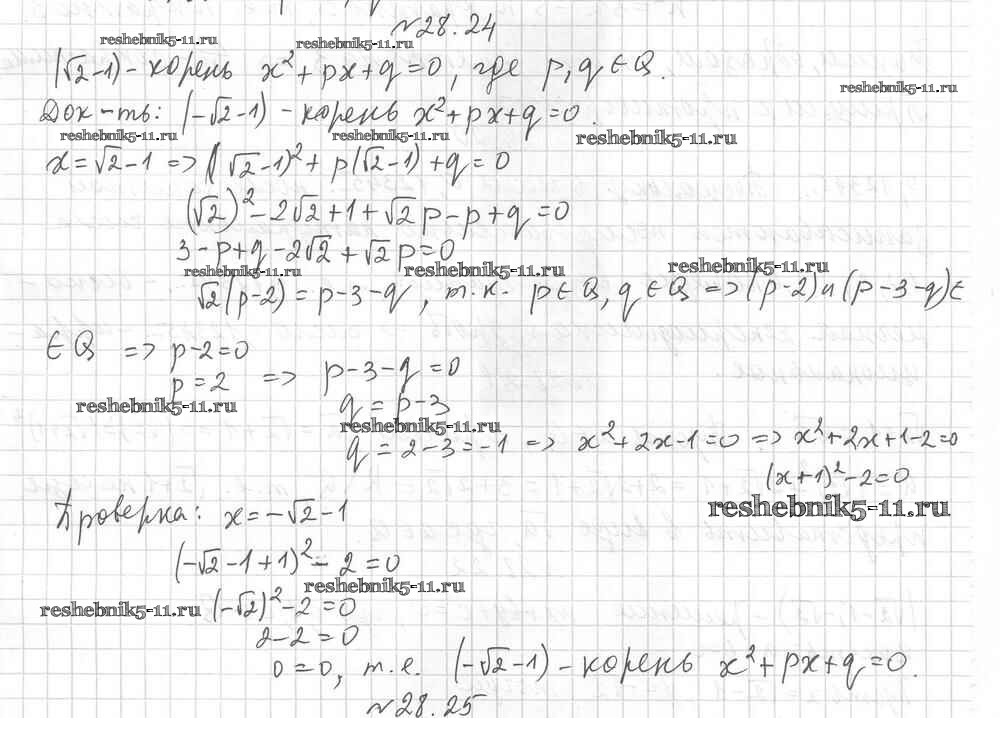 №28.24
reshebnik5-11.ru reshebnik5-11.ru
(√2-1) - корень x²+px+q=0, где p,q∈Q.
reshebnik5-11.ru
Док-ть: (-√2-1) - корень x²+px+q=0.
reshebnik5-11.ru reshebnik5-11.ru reshebnik5-11.ru
x=√2-1 => (√2-1)²+p(√2-1)+q=0
(√2)²-2√2+1+√2p-p+q=0
3-p+q-2√2+√2p=0
reshebnik5-11.ru reshebnik5-11.ru reshebnik5-11.ru
√2(p-2)=p-3-q, т.к. p∈Q, q∈Q => (p-2) и (p-3-q)∈
∈Q => p-2=0
p=2 => p-3-q=0
reshebnik5-11.ru
q=p-3
reshebnik5-11.ru
q=2-3=-1 => x²+2x-1=0 => x²+2x+1-2=0
(x+1)²-2=0
reshebnik5-11.ru
Проверка: x=-√2-1
(-√2-1+1)²-2=0
reshebnik5-11.ru
reshebnik5-11.ru (-√2)²-2=0
2-2=0
0=0, т.е. (-√2-1) - корень x²+px+q=0.
№28.25